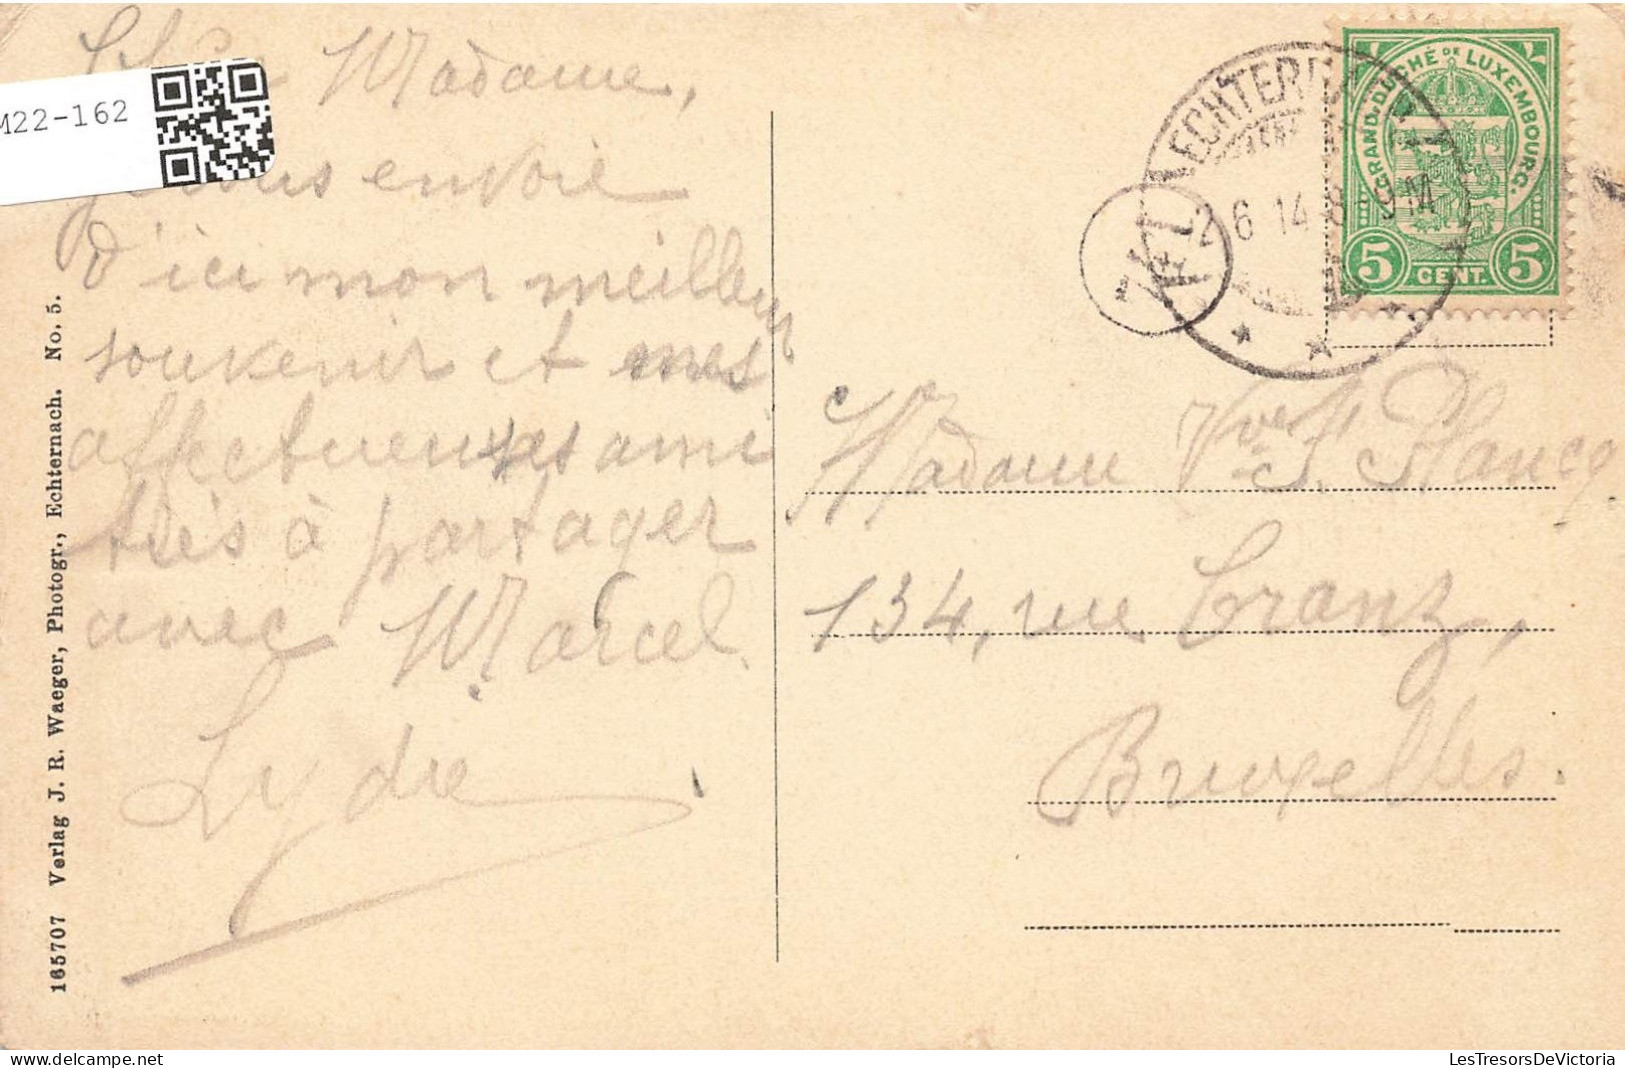 Chère Madame,
M22-162
Je vous envoie
d'ici mon meilleur
souvenir et mes
affectueuses ami
tiés à partager
avec Marcel.
Lydie
165707 Verlag J. R. Waeger, Photogr., Echternach. No. 5.
GRAND-DUCHÉ DE LUXEMBOURG.
5 CENT. 5
ECHTERNACH
2 6 14 8 9 M
Madame Vve J. Plancq
134, rue Cranz,
Bruxelles.
LesTresorsDeVictoria